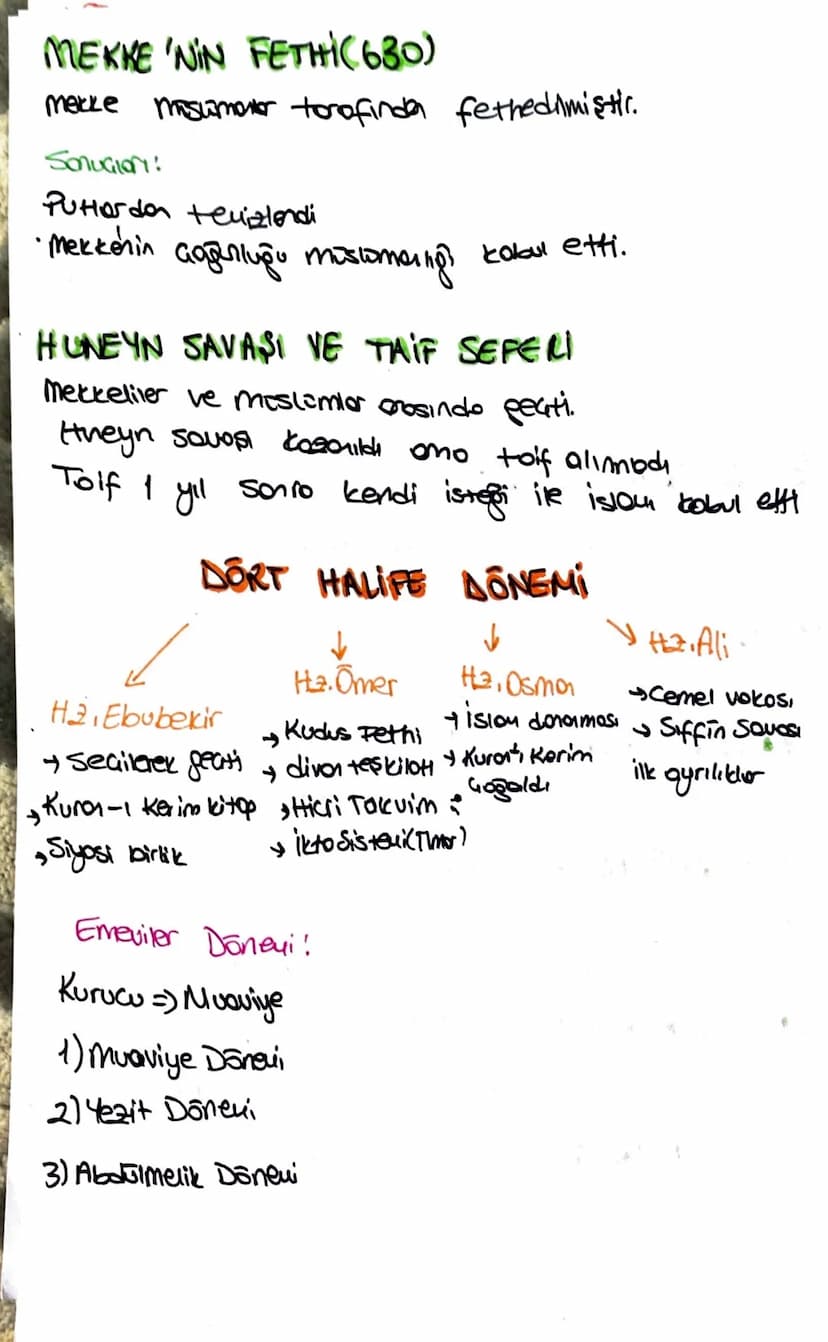 MEKKE'NİN FETHİ(630)
Mekke müslümanlar tarafından fethedilmiştir.
Sonuçları:
Putlardan temizlendi
·Mekkenin çoğunluğu müslümanlığı kabul etti.
HUNEYN SAVAŞI VE TAİF SEFERİ
Mekkeliler ve müslümlar arasında geçti.
Huneyn savaşı kazanıldı ama taif alınmadı
Taif 1 yıl sonra kendi isteği ile islamı kabul etti
DÖRT HALİFE DÖNEMİ
Hz.Ebubekir
→ seçilerek geçti
→ Kuran-ı Kerim kitap
→ Siyasi birlik
Hz.Ömer
→ Kudus Fethi
→ divan teşkilatı
→ Hicri Takvim :
→ İkta Sistemi(Tımar)
Hz.Osman
→ İslam donanması
→ Kuran-ı Kerim
Çoğaldı
Hz.Ali
→ Cemel vakası
→ Sıffin Savası
ilk ayrılıklar
Emeviler Dönemi!
Kurucu => Muaviye
1) Muaviye Dönemi
2) Yezit Dönemi
3) Abdülmelik Dönemi